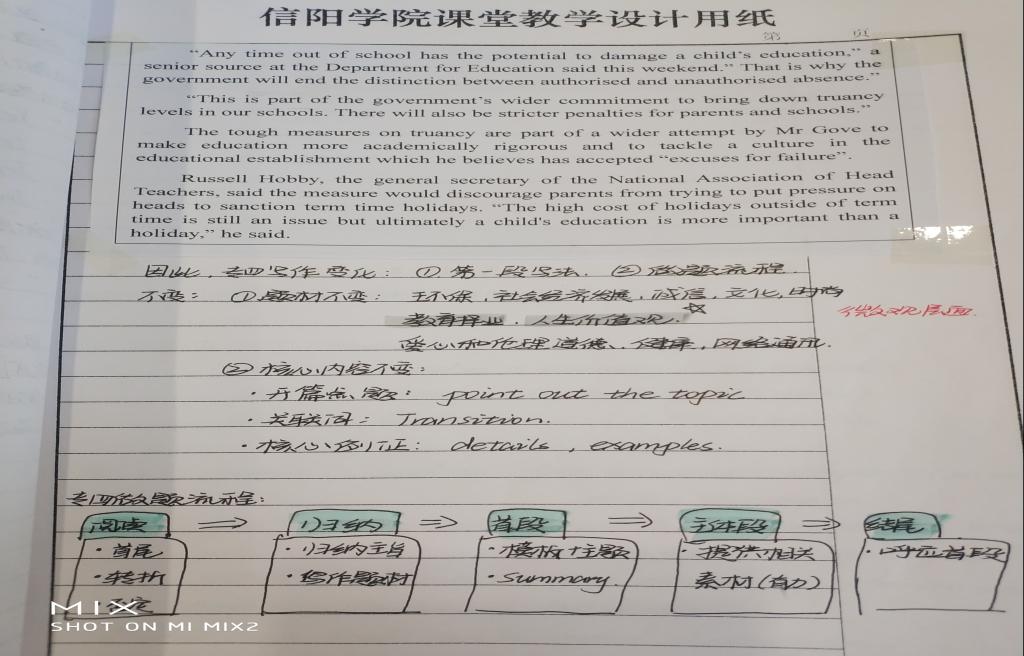 信阳学院课堂教学设计用纸
第 页
"Any time out of school has the potential to damage a child's education," a
senior source at the Department for Education said this weekend." That is why the
government will end the distinction between authorised and unauthorised absence."
"This is part of the government's wider commitment to bring down truancy
levels in our schools. There will also be stricter penalties for parents and schools."
The tough measures on truancy are part of a wider attempt by Mr Gove to
make education more academically rigorous and to tackle a culture in the
educational establishment which he believes has accepted "excuses for failure".
Russell Hobby, the general secretary of the National Association of Head
Teachers, said the measure would discourage parents from trying to put pressure on
heads to sanction term time holidays. "The high cost of holidays outside of term
time is still an issue but ultimately a child's education is more important than a
holiday," he said.
因此，专四写作变化：①第一段写法，②做题流程
不变：①题材不变：环保，社会经济发展，诚信，文化，时尚
微观层面
教育择业，人生价值观，☆
爱心和伦理道德、健康，网络通讯.
②核心内容不变：
·开篇点题：point out the topic
·关联词：Transition.
·核心例证：details, examples.
专四做题流程：
阅读 ⇒ 归纳 ⇒ 首段 ⇒ 主体段 ⇒ 结尾
·首尾 ·归纳主旨 ·模板+主题 ·提供相关 ·呼应首段
·转折 ·写作题材 ·summary. 素材(有力)
MIX
SHOT ON MI MIX2